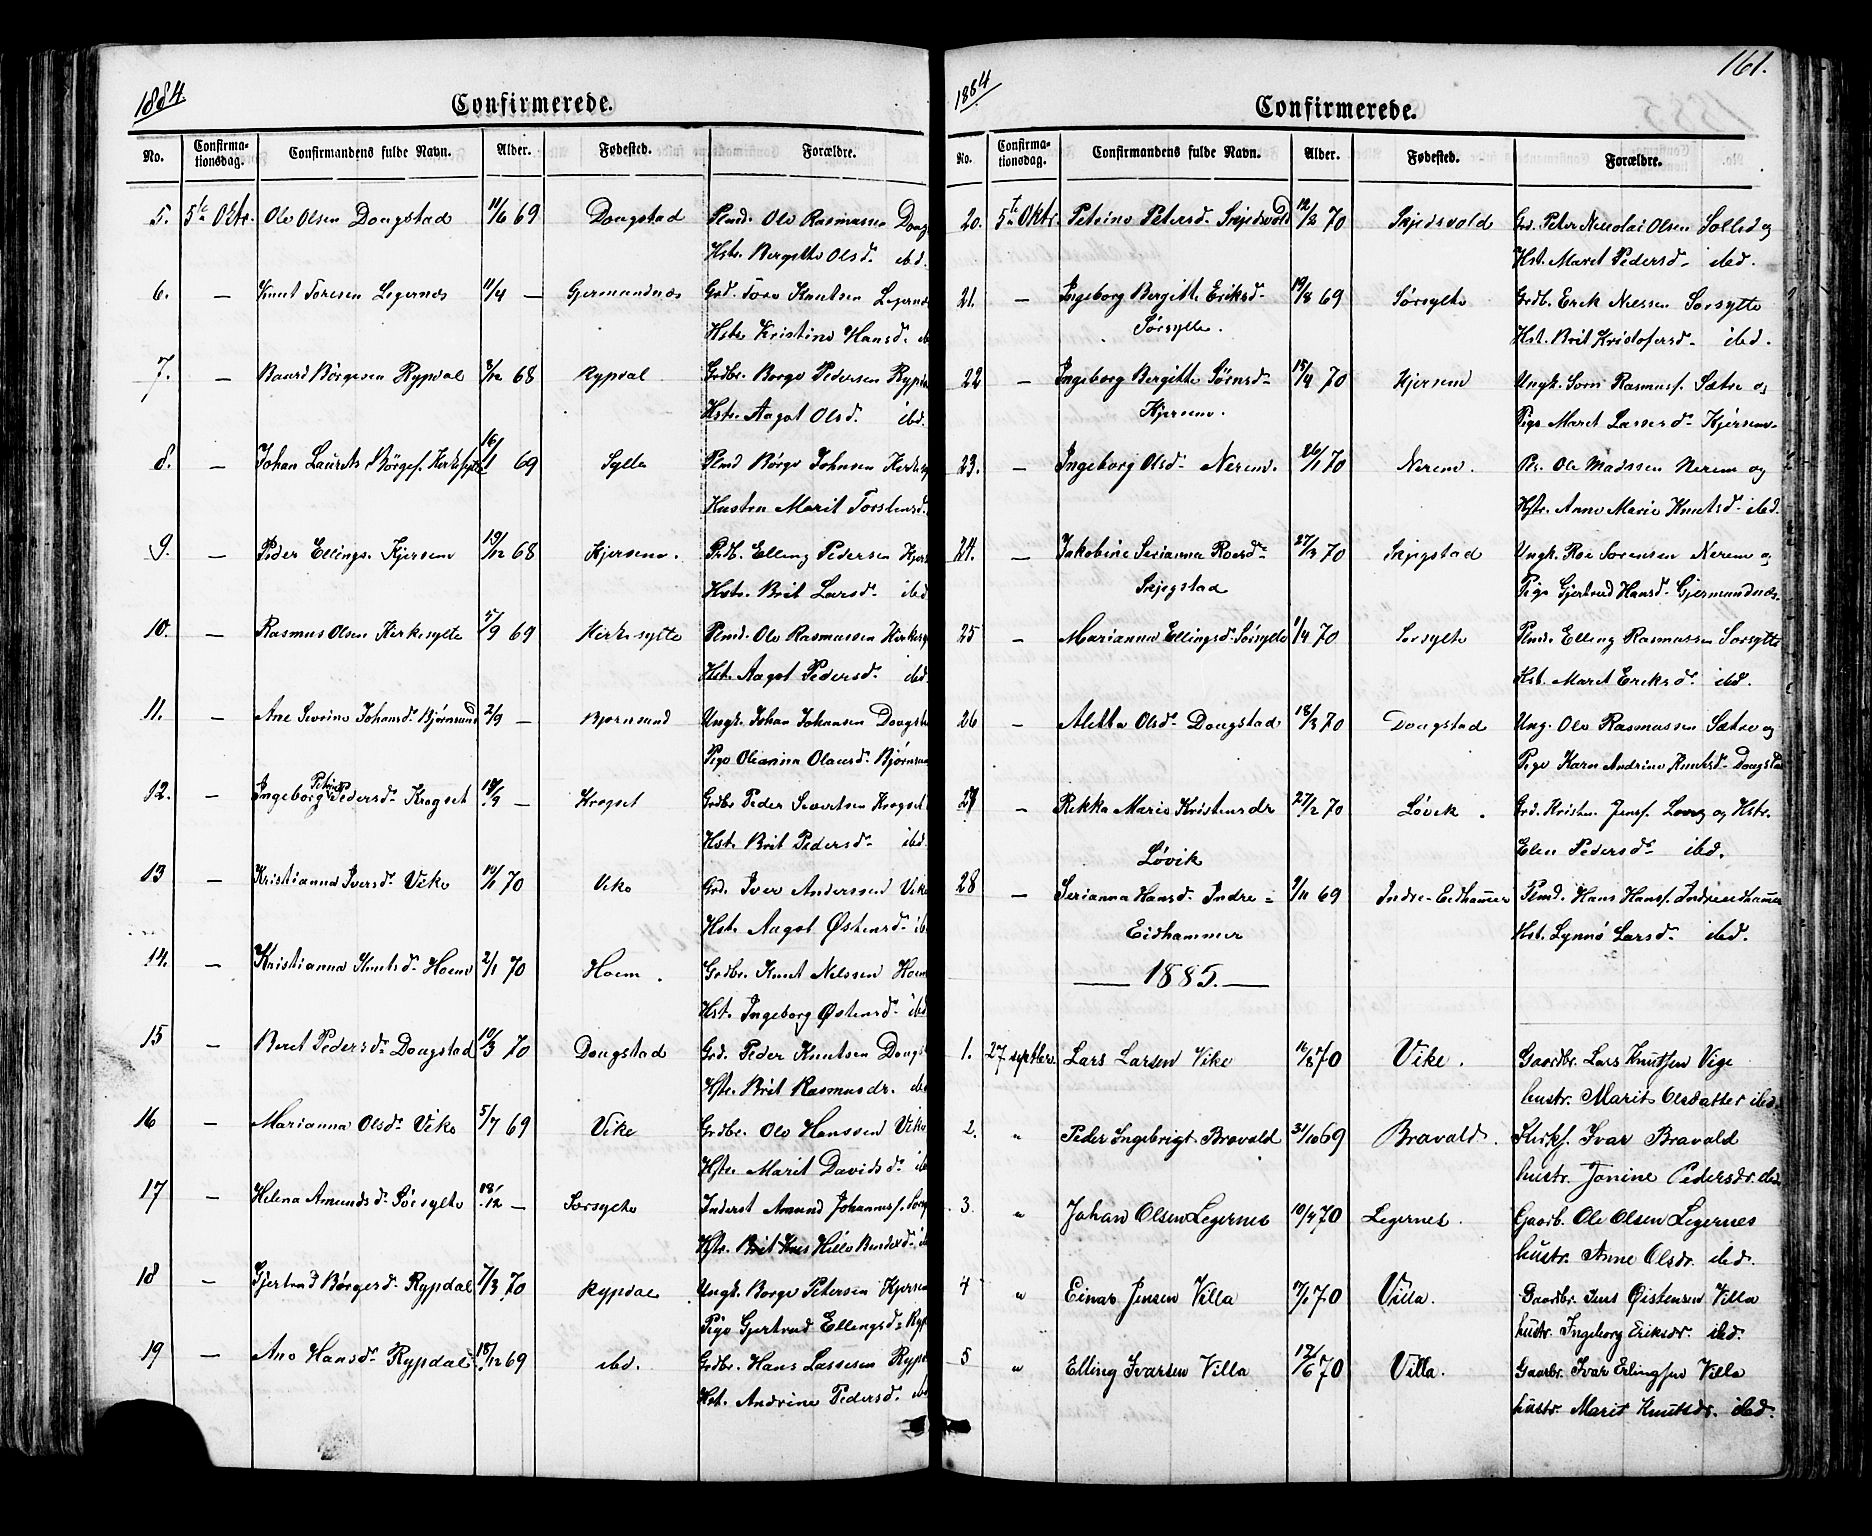 1884.
Confirmerede.
No. Confirmationsdag. Confirmandens fulde Navn. Alder. Fødested. Forældre.
5. 5te Oktr. Ole Olsen Dougstad 11/6 69 Dougstad Plmd. Ole Rasmussen Doug
Hstr. Bergitte Olsd. ibd.
6. — Knut Toresen Legernæs 11/4 — Gjermundnæs Grd. Tore Knutsen Legernæ
Hstr. Kristine Hansd. ib
7. — Baard Børgesen Rypdal 3/12 68 Rypdal Grdbr. Børge Pedersen Rypda
Hstr. Aagot Olsd. ibd.
8. — Johan Laurits Børges. Kirkesylte 16/11 69 Sylte Plmd Børge Johnsen Kirkes
Hustru Marit Torstensd.
9. — Peder Ellings. Kjersem 19/12 68 Kjersem. Grdb. Elling Pedersen Kjers
Hstr. Brit Larsd. ibd
10. — Rasmus Olsen Kirkesylte 5/9 69 Kirkesylte Plmd. Ole Rasmussen Kirkesy
Hst. Aagot Pedersd. ibd.
11. — Ane Severine Johansd. Bjørnsund 2/9 — Bjørnsund Ungk. Johan Johansen Dougsta
Pige Oleanna Olausd. Bjørnsun
12. — Ingeborg Petrine Pedersd. Krogset 18/9 — Krogset Grdbr Peder Sivertsen Krogset
Hst. Brit Pedersd. ibd.
13 — Kristianna Iversd. Vike 14/1 70 Vike Grd. Iver Anderssen Vike
Hst. Aagot Østensd. ib
14. — Kristianna Knutsd. Hoem 2/1 70 Hoem. Grdbr. Knut Nilssen Hoem
Hst. Ingeborg Østensd. ibd
15 — Beret Pedersd. Dougstad 10/3 70 Dougstad Grd. Peder Knutsen Dougs
Hstr. Brit Rasmusdr. ibd
16 — Marianna Olsd. Vike 5/7 69 Vike Grdbr. Ole Hanssen Vike
Hstr. Marit Davidsd. ib
17 — Helena Amundsd. Sørsylte 18/12 — Sorsylte Inderst Amund Johannes. Sors
Hstr. Brit
18 — Gjertrud Børgesd. Rypdal 7/3 70 Rypdal Ungk. Borge Petersen Kjersem
Pige Gjertrud Ellingsd. Ryp
19 — Ane Hansd. Rypdal 18/12 69 ibd. Grdbr. Hans Lassesen Rypd
Hst. Andrine Pedersd. ibd
161.
1884
Confirmerede.
No. Confirmationsdag. Confirmandens fulde Navn. Alder. Fødested. Forældre.
20. 5te Oktr. Petrine Petersd. Skjedsvold 12/2 70 Skjedsvold Grd. Peter Nicolai Olsen Solled og
Hst. Maret Pedersd. ibd.
21. — Ingeborg Bergitte Eriksd. 19/8 69 Sørsylte Grdb. Erik Nilssen Sorsylte
Sørsylte. Hst. Brit Kristofersd. ibd.
22 — Ingeborg Bergitte Sørnsd. 15/4 70 Kjersem Ungk. Sorn Rasmuss. Sætre og
Kjersem. Pige Maret Lassesd. Kjersem.
23. — Ingeborg Olsd. Nerem. 26/1 70 Nerem. Ole Madssen Nerem og
Hstr. Anne Marie Knutsd. ibd.
24. — Jakobine Serianna Roesd. 27/3 70 Skjegstad Ungk. Roe Sorensen Nerem og
Skjegstad Pige Gjertrud Hansd. Gjermundnæs.
25 — Marianna Ellingsd. Sørsylte 1/4 70 Sorsylte Plmd. Elling Rasmussen Sorsylte
Hst. Maret Eriksd. ibd.
26 — Aletta Olsd. Dougstad 18/3 70 Dougstad Ung. Ole Rasmussen Sætre og
Pige Karn Andrine Knutsd. Dougstad
27 — Rikka Marie Kristensdr 27/2 70 Løvik. Grd. Kristen Jens. Lovig og Hstr.
Løvik Elen Pedersd. ibd.
28 — Serianna Hansd. Indre= 9/11 69 Indre-Eidhammer Plmd. Hans Hans. Indreeidhammer
Eidhammer Hst. Lynnø Larsd. ibd.
— 1885. —
1. 27 septbr. Lars Larsen Vike 16/8 70 Vike. Gaardbr. Lars Knutsen Vige
hustr. Marit Olsdatter ibd.
2. " Peder Ingebrigt. Bravold 31/10 69 Bravold. Kirks. Ivar Bravold
hustr. Janine Pedersdr. ibd.
3. " Johan Olsen Legernes 10/4 70 Legernes. Gaardb. Ole Olsen Legernes
hustr. Anne Olsdr. ibd.
4 " Einar Jensen Villa 17/1 70 Villa. Gaardbr. Jens Østensen Villa
hustr. Ingeborg Eriksdr. ibd.
5 " Elling Ivarsen Villa 12/6 70 Villa. Gaardbr. Ivar Erlingsen Villa
hustr. Marit Knutsdr. ibd.